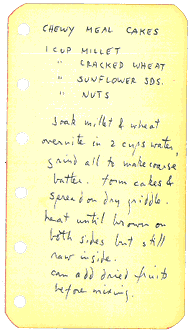 CHEWY MEAL CAKES
1 CUP MILLET
" CRACKED WHEAT
" SUNFLOWER SDS.
" NUTS
Soak millet & wheat
overnite in 2 cups water,
grind all to make coarse
batter. form cakes &
spread on dry griddle.
heat until brown on
both sides but still
raw inside.
can add dried fruits
before mixing.